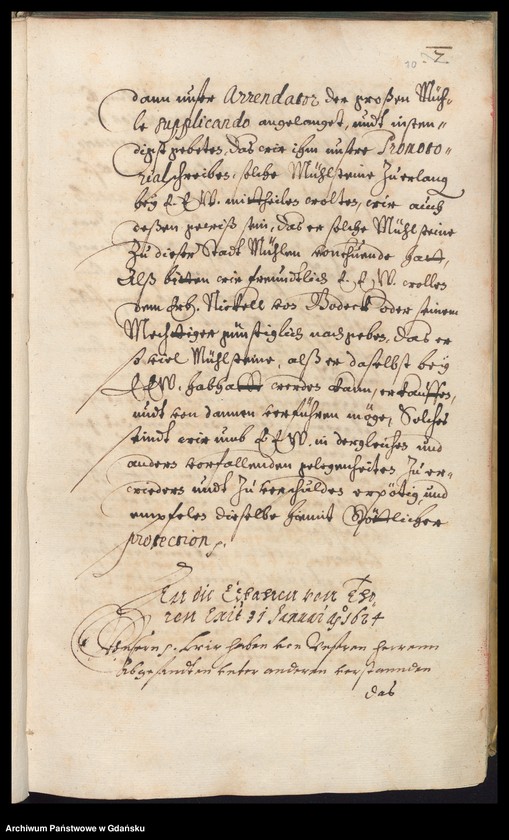 7
dann unser Arrendator der großen Müh-
le supplicando angelanget, undt insten-
digst gebeten, das wir ihm unsere Promoto-
rialschreiben, solche Mühlsteine zu erlang
bey E E W. mittheilen wolten, wir auch
deßen gewiß sein, das er solche Mühlsteine
zu dieser Stadt Mühlen vonnöten hatt,
Alß bitten wir freundtlich E. E W. wollen
dem Nickell von Bodeck oder seinem
Mechtiger günstiglich nachgeben, das er
so viel Mühlsteine, alß er daselbst bey
E E W. habhafft werden kann, erkauffen,
undt von dannen verführen möge, Solches
sindt wir umb E E W. in dergleichen und
andern vorfallenden gelegenheiten zu er-
wiedern undt zu verschulden erpötig, und
empfelen dieselbe hiemit Göttlicher
protection.
An die von Tho
ren 31 Januarii Ao 1624
Unsern p. Wir haben von Unseren Herrenn
Abgesandten unter anderen verstanden
das
Archiwum Państwowe w Gdańsku